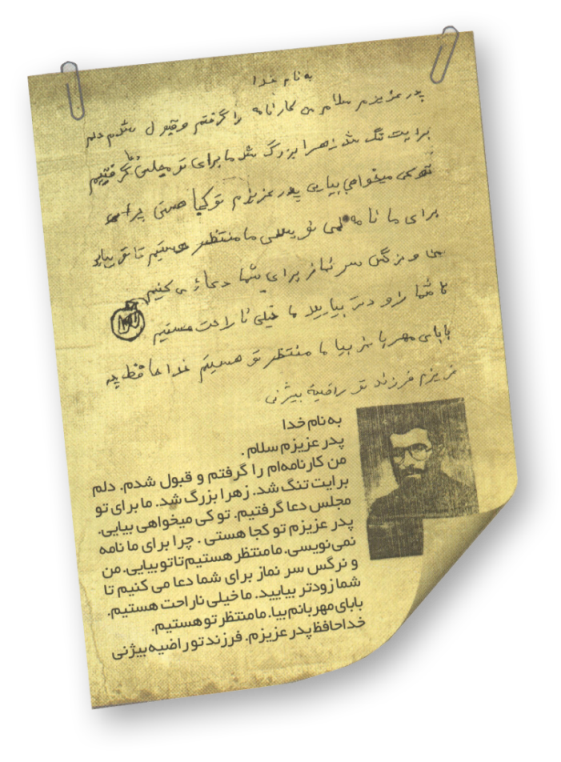 به نام خدا
پدر عزیزم سلام من کارنامه را گرفتم و قبول شدم دلم
برایت تنگ شد زهرا بزرگ شد ما برای تو مجلس دعا گرفتیم
تو کی میخواهی بیایی پدر عزیزم تو کجا هستی چرا
برای ما نامه نمی نویسی ما منتظر هستیم تا تو بیایی
من و نرگس سر نماز برای شما دعا می کنیم
تا شما زودتر بیایید ما خیلی ناراحت هستیم
بابای مهربانم بیا ما منتظر تو هستیم خداحافظ پدر
عزیزم فرزند تو راضیه بیژنی
به نام خدا
پدر عزیزم سلام.
من کارنامه‌ام را گرفتم و قبول شدم. دلم
برایت تنگ شد. زهرا بزرگ شد. ما برای تو
مجلس دعا گرفتیم. تو کی میخواهی بیایی.
پدر عزیزم تو کجا هستی. چرا برای ما نامه
نمی نویسی. ما منتظر هستیم تا تو بیایی. من
و نرگس سر نماز برای شما دعا می کنیم تا
شما زودتر بیایید. ما خیلی ناراحت هستیم.
بابای مهربانم بیا. ما منتظر تو هستیم.
خداحافظ پدر عزیزم. فرزند تو راضیه بیژنی